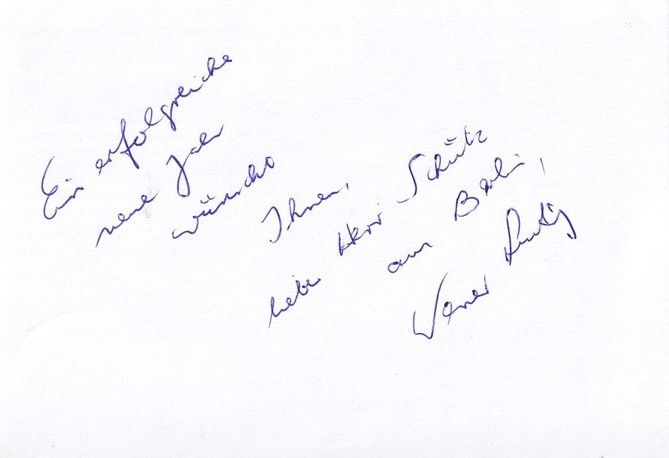 Ein erfolgreiche
neue Jahr
wünscht
Ihnen,
lieber Herr Schütz
aus Berlin,
Werner